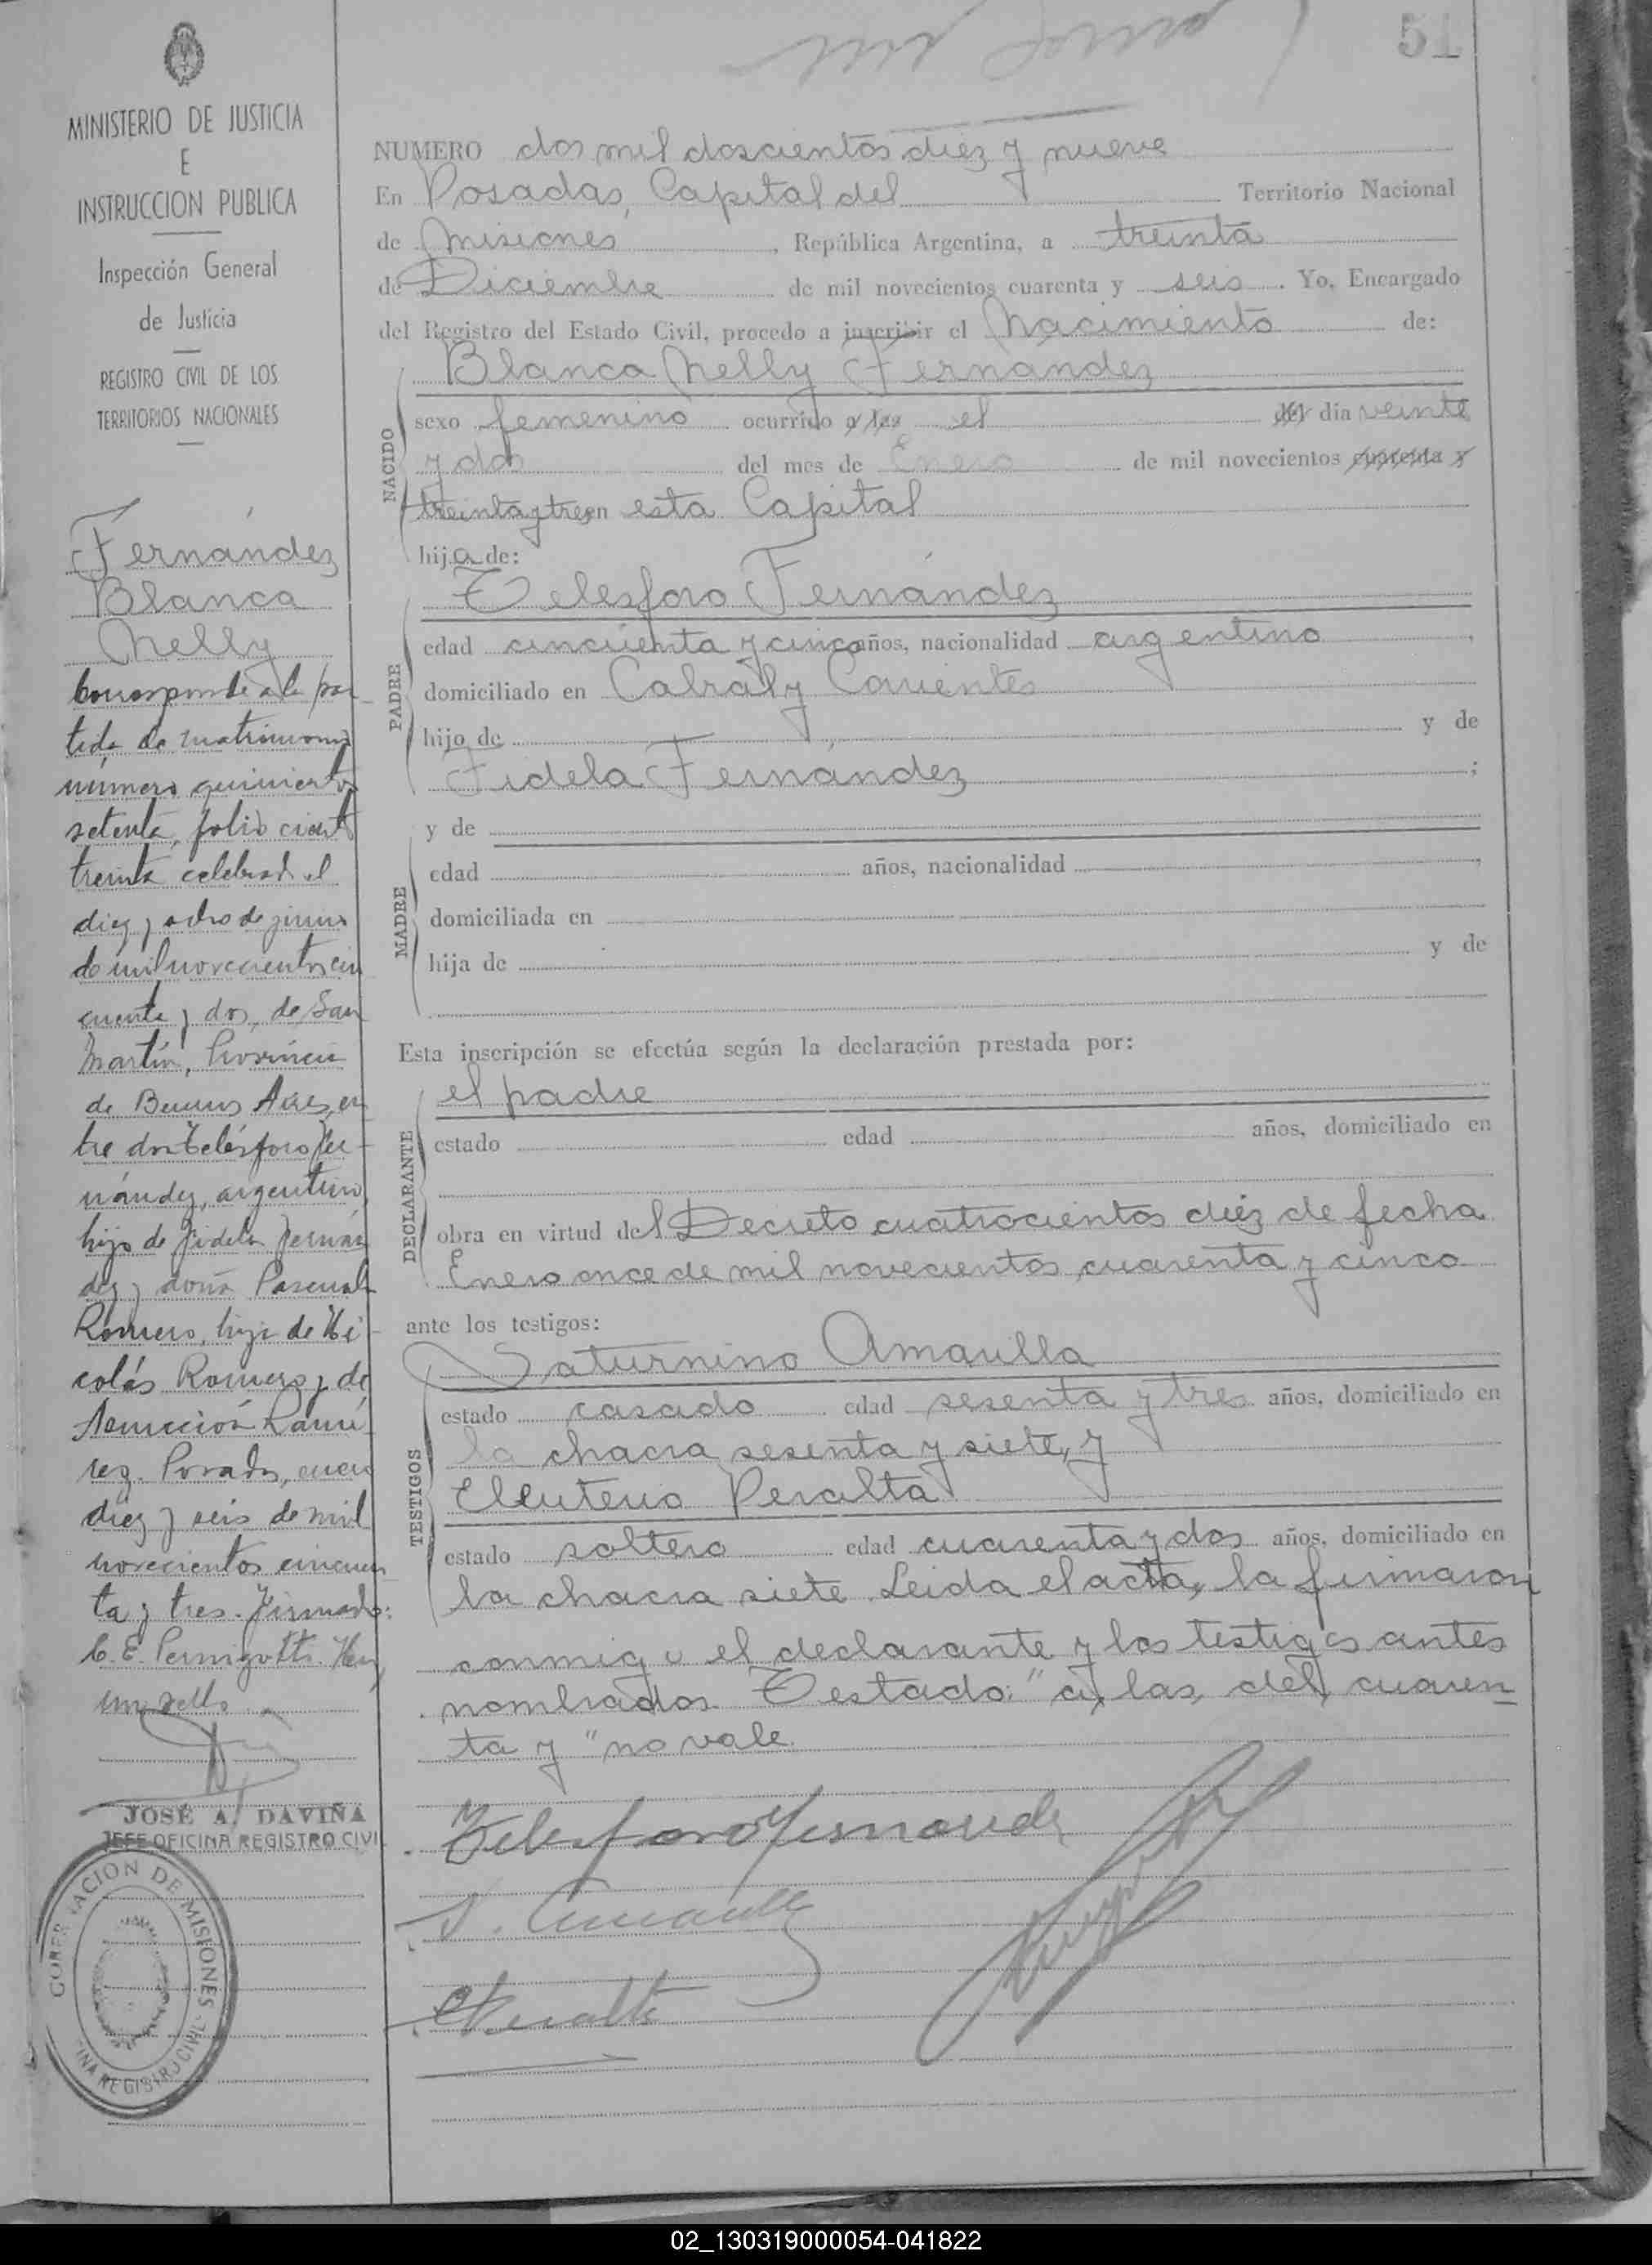 51
MINISTERIO DE JUSTICIA
E
INSTRUCCION PUBLICA
Inspección General
de Justicia
REGISTRO CIVIL DE LOS
TERRITORIOS NACIONALES
Fernández
Blanca
Nelly
Corresponde a la par-
tida de matrimonio
número quinientos
setenta, folio ciento
treinta celebrado el
diez y ocho de junio
de mil novecientos cin
cuenta y dos, de San
Martín, Provincia
de Buenos Aires, en
tre don Telésforo Fer-
nández, argentino,
hijo de Fidela Fernán
dez y doña Pascuala
Romero, hija de Ni-
colás Romero y de
Asunción Ramí-
rez. Posadas, enero
diez y seis de mil
novecientos cincuen-
ta y tres. Firmado:
C. E. Pernigotti. Hay
un sello
JOSÉ A. DAVIÑA
JEFE OFICINA REGISTRO CIVI
GOBERNACION DE MISIONES
INA REGISTRO CIVIL
NUMERO dos mil doscientos diez y nueve
En Posadas, Capital del Territorio Nacional
de Misiones, República Argentina, a treinta
de Diciembre de mil novecientos cuarenta y seis. Yo, Encargado
del Registro del Estado Civil, procedo a inscribir el Nacimiento de:
NACIDO
Blanca Nelly Fernández
sexo femenino ocurrido a las el del día veinte
y dos del mes de Enero de mil novecientos cuarenta y
treinta y tres en esta Capital
hija de:
PADRE
Telesforo Fernández
edad cincuenta y cinco años, nacionalidad argentino,
domiciliado en Cabral y Corrientes
hijo de y de
Fidela Fernández;
MADRE
y de
edad años, nacionalidad,
domiciliada en
hija de y de
Esta inscripción se efectúa según la declaración prestada por:
DECLARANTE
el padre
estado edad años, domiciliado en
obra en virtud del Decreto cuatrocientos diez de fecha
Enero once de mil novecientos cuarenta y cinco
ante los testigos:
TESTIGOS
Saturnino Amarilla
estado casado edad sesenta y tres años, domiciliado en
la chacra sesenta y siete, y
Eleuterio Peralta
estado soltero edad cuarenta y dos años, domiciliado en
la chacra siete. Leida el acta, la firmaron
conmigo el declarante y los testigos antes
nombrados. Testado: "a, las, del, cuaren
ta y "no vale
Telesforo Fernandez
S. Amarilla
E Peralta
02_130319000054-041822